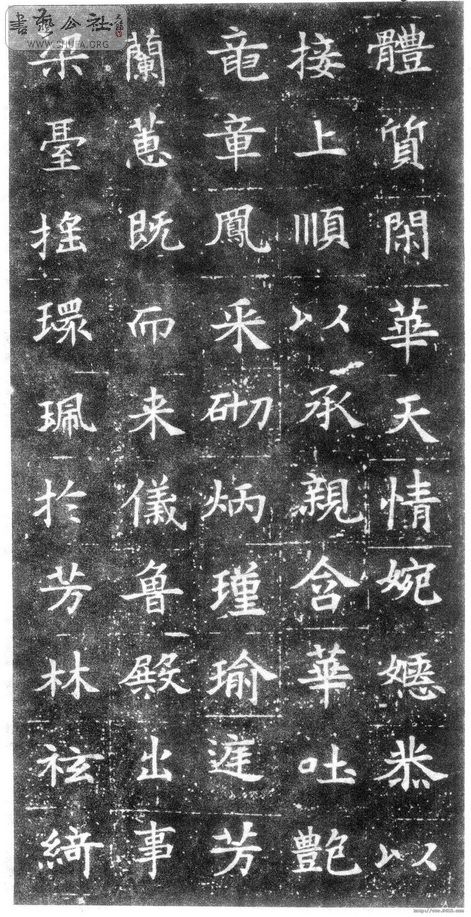 體質閑華天情婉嫕恭以
接上順以承親含華吐艷
竜章鳳采砌炳瑾瑜庭芳
蘭蕙既而来儀魯殿出事
梁臺搖環珮於芳林袨綺
書藝公社
WWW.SHUFA.ORG